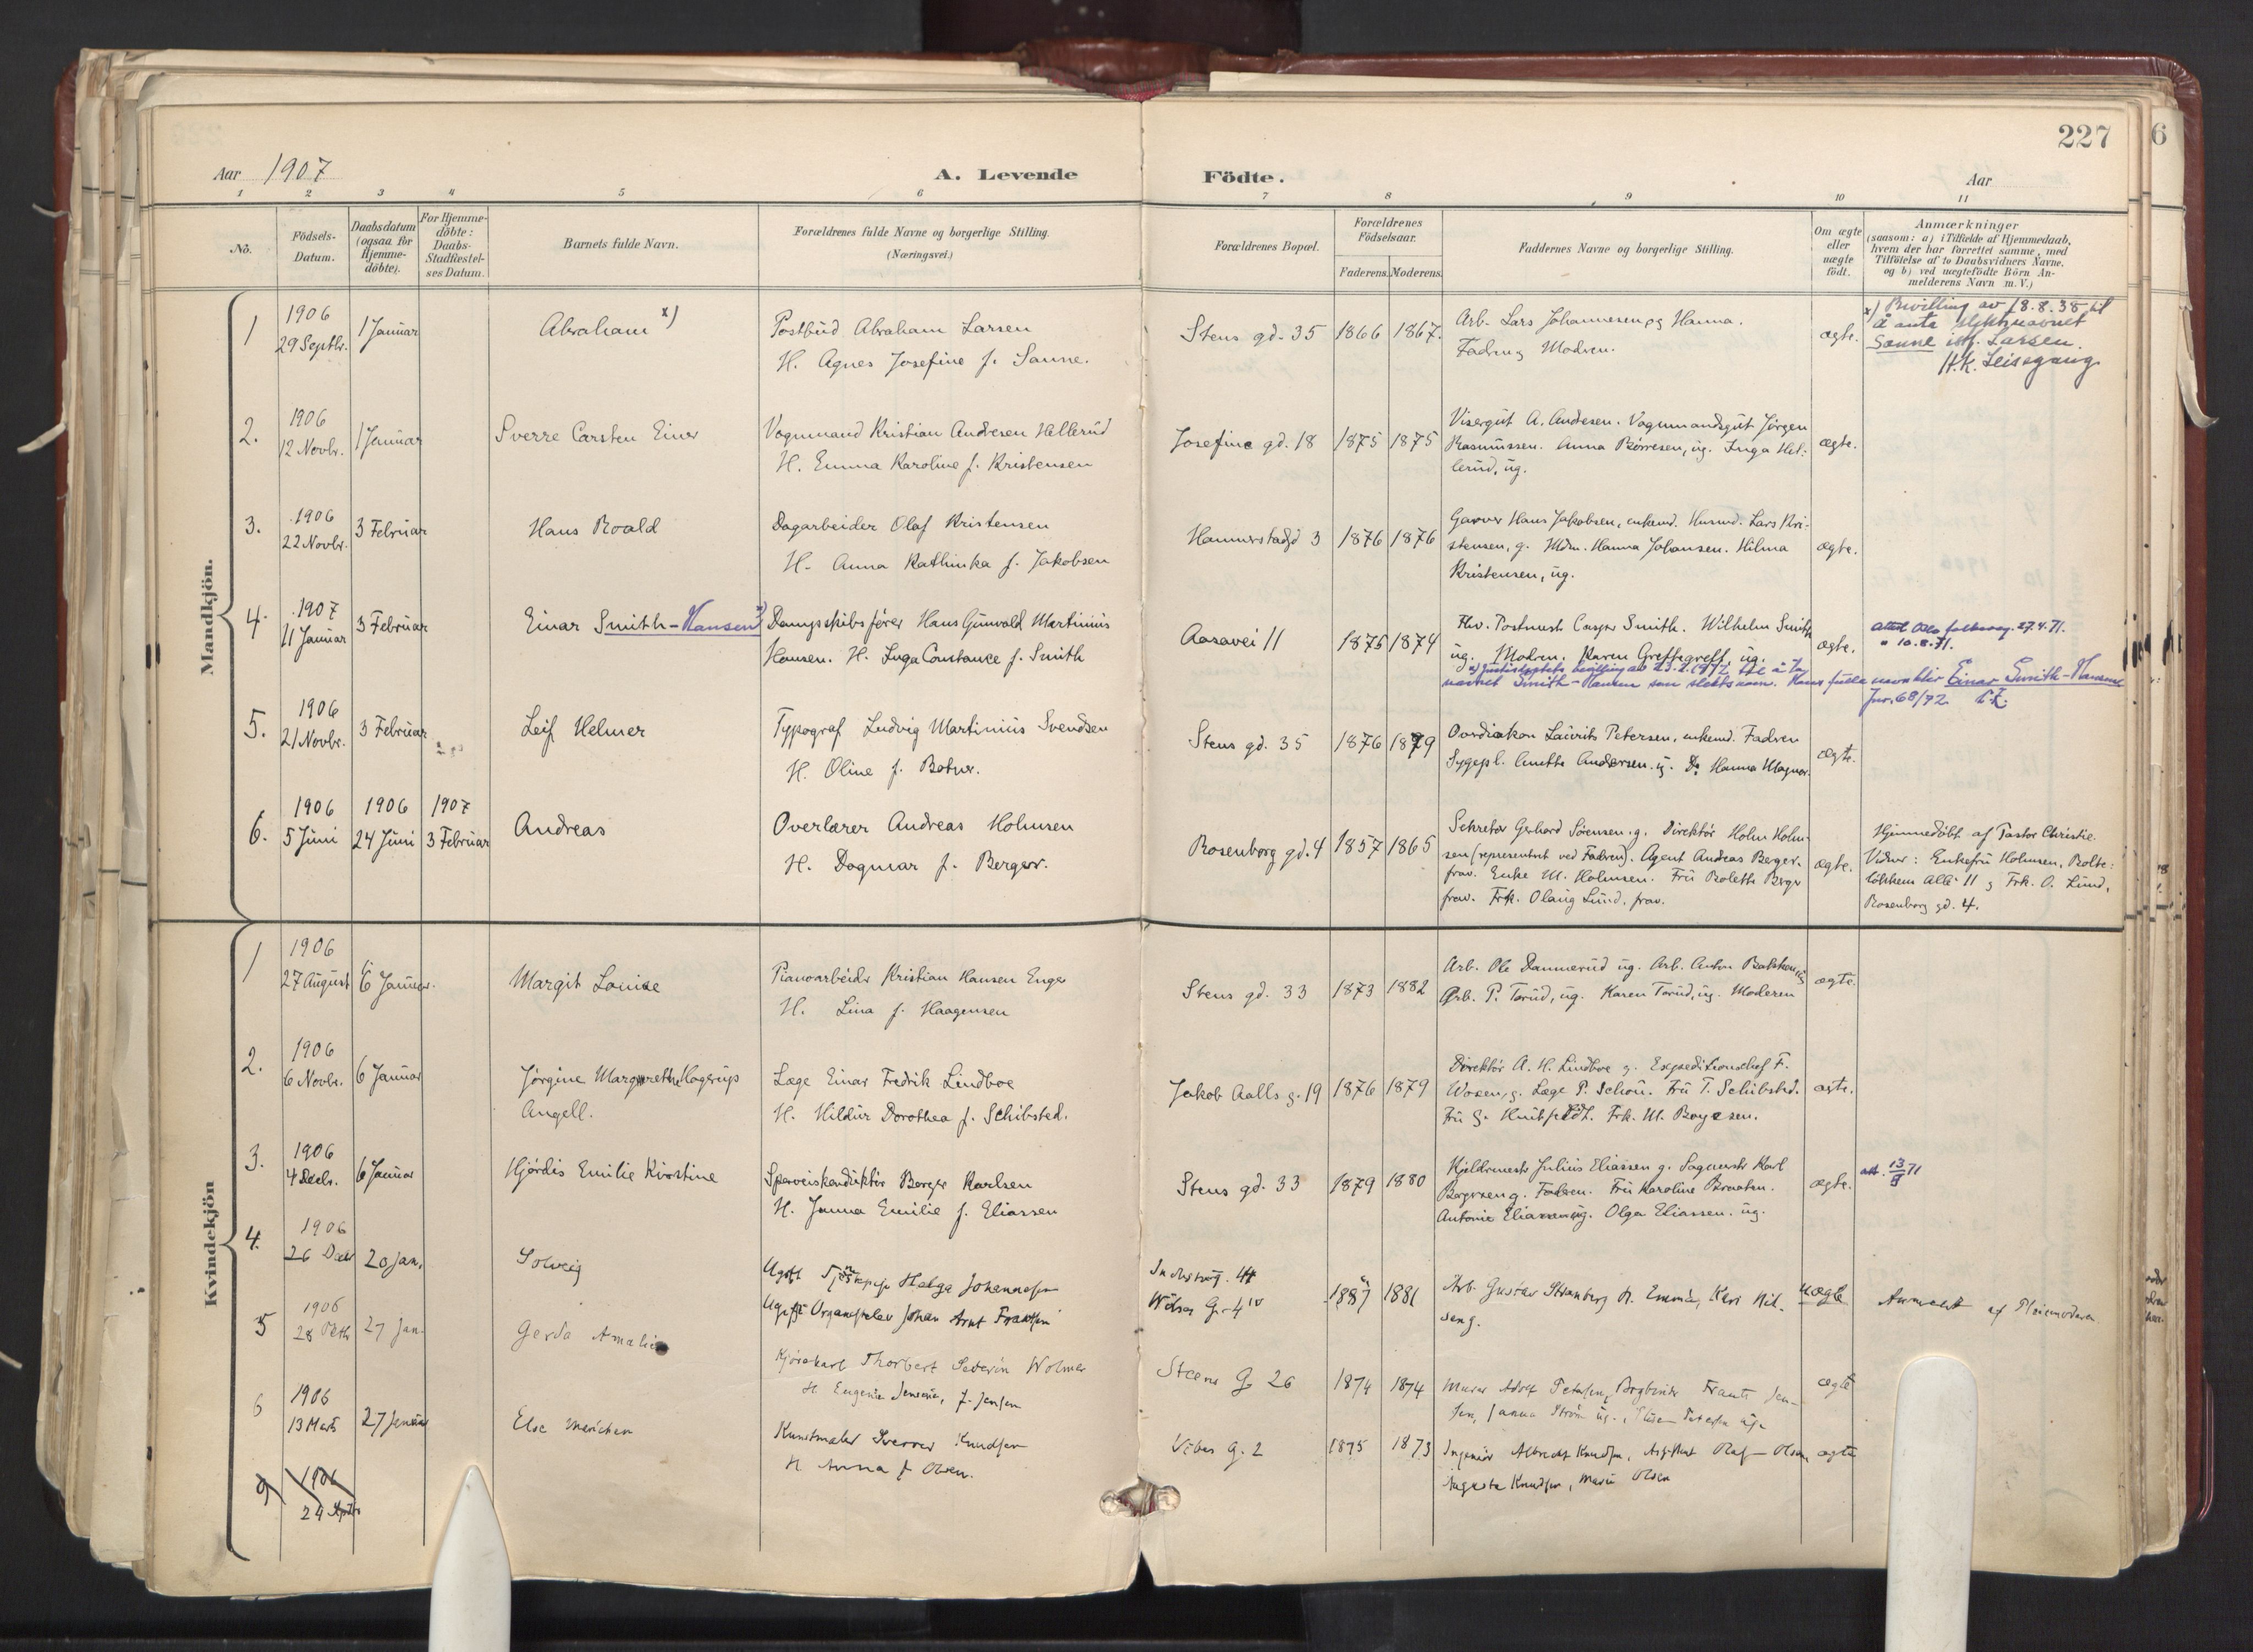 227
6
Aar 1907
A. Levende Födte.
Aar
1 2 3 4 5 6 7 8 9 10 11
No.
Födsels-Datum.
Daabsdatum (ogsaa for Hjemme-döbte).
For Hjemme-döbte: Daabs-Stadfæstel-ses Datum.
Barnets fulde Navn.
Forældrenes fulde Navne og borgerlige Stilling.
(Næringsvei.)
Forældrenes Bopæl.
Forældrenes Födselsaar.
Faderens. Moderens.
Faddernes Navne og borgerlige Stilling.
Om ægte eller uægte födt.
Anmærkninger
(saasom: a) i Tilfælde af Hjemmedaab,
hvem der har forrettet samme, med
Tilföielse af to Daabsvidners Navne,
og b) ved uægtefödte Börn An-
melderens Navn m. V.)
Mandkjön.
1 1906 29 Septbr. 1 Januar Abraham x)
Postbud Abraham Larsen
H. Agnes Josefine f. Sanne.
Stens gd. 35 1866 1867.
Arb. Lars Johannesen og Hanna.
Fadren og Modren.
ægte.
x) Bevilling av 18.8.38 til
å anta slektsnavnet
Sanne istf. Larsen.
H.K. Leisegang
2. 1906 12 Novbr. 1 Januar Sverre Carsten Einer
Vognmand Kristian Andresen Hellerud
H. Emma Karoline f. Kristensen
Josefine gd. 18 1875 1875
Visergut A. Andresen. Vognmandsgut Jörgen
Rasmussen. Anna Börresen, ug. Inga Hel-
lerud, ug.
ægte.
3. 1906 22 Novbr. 3 Februar Hans Roald
Dagarbeider Olaf Kristensen
H. Anna Kathinka f. Jakobsen
Hammerstadgd 3 1876 1876
Garver Hans Jakobsen, enkemd. Husmd. Lars Kri-
stensen, g. Mdm. Hanna Johansen. Hilma
Kristensen, ug.
ægte.
4. 1907 11 Januar 3 Februar Einar Smith-Hansen x)
Dampskibsförer Hans Gunvald Martinius
Hansen. H. Inga Constance f. Smith
Aasavei 11 1876 1874
Fhv. Postmest. Casper Smith. Wilhelm Smith
ug. Modren. Karen Greffsgreff, ug.
ægte.
Attest Oslo folkereg. 27.4.71.
" 10.8.71.
navnet Smith-Hansen som slektsnavn. Hans fulle navn blir Einar Smith-Hansen
Jnr. 68/72
5. 1906 21 Novbr. 3 Februar Leif Helmer
Typograf Ludvig Martinius Svendsen
H. Oline f. Botner.
Stens gd. 35 1876 1879
Ovrdiakon Laurits Petersen, enkemd. Fadren
Sygepl. Anette Andersen ug. Do Hanna Magner.
ægte.
6. 1906 5 Juni 1906 24 Juni 1907 3 Februar Andreas
Overlærer Andreas Holmsen
H. Dagmar f. Berger.
Rosenborg gd. 4 1857 1865
Sekretær Gerhard Sörensen. g. Direktör Holm Holm-
sen (representert ved Fadren). Agent Andreas Berger.
frav. Enke M. Holmsen. Fru Bolette Berger
frav. Frk. Olaug Lund, frav.
ægte.
Hjemmedöbt af Pastor Christie.
Vidner: Enkefru Holmsen, Bolte-
lökkens Alle 11 og Frk. O. Lund,
Rosenborg gd. 4.
Kvindekjön
1 1906 27 August 6 Januar. Margit Louise
Pianoarbeider Kristian Hansen Enger
H. Lina f. Haagensen
Stens gd. 33 1873 1882
Arb. Ole Dannerud ug. Arb. Anton Bakken ug
Arb. P. Torud, ug. Karen Torud, ug. Moderen
ægte.
2. 1906 6 Novbr. 6 Januar Jörgine Margrethe Hagerup
Angell.
Læge Einar Fredrik Lindboe
H. Hildur Dorothea f. Schibsted.
Jakob Aalls g. 19 1876 1879
Direktör A. H. Lindboe g. Expeditionschef F.
Woxen, g. Læge P. Schou. Fru T. Schibsted.
Fru G. Huitfeldt. Frk. M. Boyesen.
ægte.
3. 1906 4 Decbr. 6 Januar Hjördis Emilie Kirstine
Sporveiskonduktör Borger Karlsen
H. Janna Emilie f. Eliassen
Stens gd. 33 1879 1880
Kjeldermester Julius Eliassen g. Sagmester Karl
Borgersen g. Fadren. Fru Karoline Braaten.
Antonie Eliassen ug. Olga Eliassen. ug.
ægte.
att. 13/8 71
4. 1906 26 Decbr 20 Jan. Solveig
Ugift Helga Johannesen
Ugift Organistelev Johan Arnt Frantzen
Wibes G. 4 IV 1887 1881
Arb. Gustav Stramberg H. Emma, Kari Nil-
sen g.
uægte
Anmeldt af Pleiemoderen
5 1906 28 27 Jan. Gerda Amalie
Kjörekarl Thorbert Severin Wolmer
H. Eugenie Jensine, f. Jensen
Steens G 26 1874 1874
Murer Adolf Petersen, Bogbinder Frantz Jen-
sen, Janna Ström ug.
ægte
6 1906 13 Marts 27 Januar Else Marichen
Kunstmaler Sverre Knudsen
H. Anna f. Olsen.
Vibes G. 2 1875 1873
Ingeniör Albrecht Knudsen, Assistent Olaf Olsen
Augusta Knudsen, Marie Olsen
ægte
1906
24